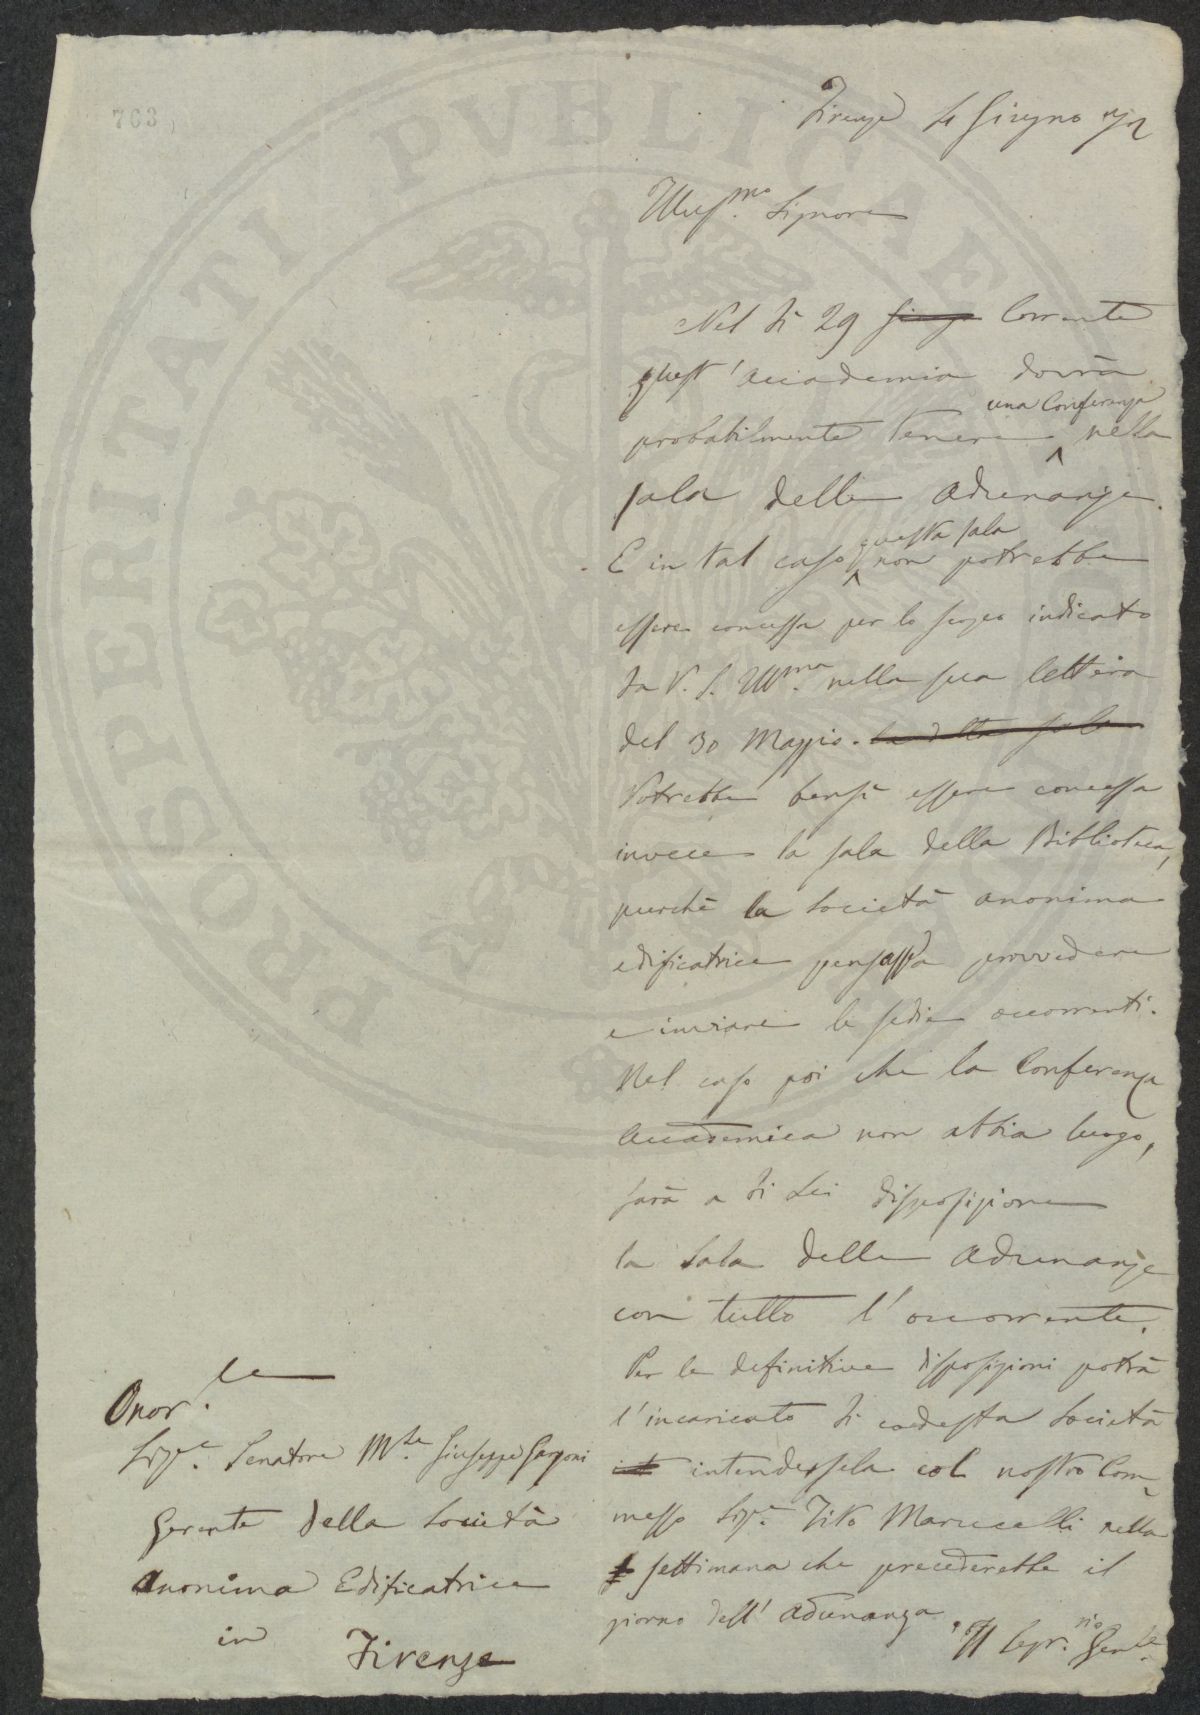 763
Firenze 4 Giugno 72
Illus.mo Signore
Nel dì 29 giugo Corrente
quest'Accademia dovrà
probabilmente tenere una Conferenza nella
sala delle Adunanze.
E in tal caso questa sala non potrebbe
essere concessa per lo scopo indicato
da V. S. Ill.ma nella sua lettera
del 30 Maggio. la detta sala
Potrebbe bensì essere concessa
invece la sala della Biblioteca,
purchè la Società anonima
edificatrice pensasse a provvedere
e inviare le sedie occorrenti.
Nel caso poi che la Conferenza
Accademica non abbia luogo,
sarà a di Lei disposizione
la Sala delle Adunanze
con tutto l'occorrente.
Per le definitive disposizioni potrà
l'incaricato di codesta Società
intendersela col nostro Com-
messo Sig.e Tito Marucelli nella
settimana che precederebbe il
giorno dell'adunanza
Il Segr.rio Gen.le
Onor.le
Sig.e Senatore M.se Giuseppe Garzoni
Gerente della Società
Anonima Edificatrice
in
Firenze
PROSPERITATI PVBLICAE